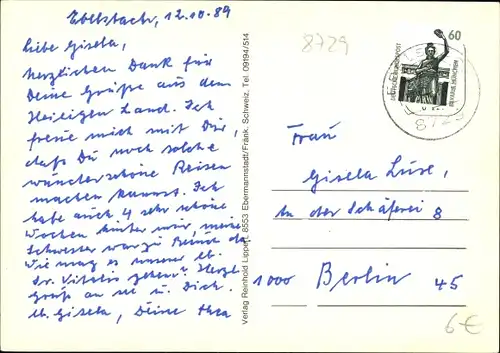 Ebelsbach, 12.10.89
Liebe Gisela,
herzlichen Dank für
Deine Grüße aus dem
Heiligen Land. Ich
freue mich mit Dir,
daß Du noch solche
wunderschöne Reisen
machen kannst. Ich
habe auch 4 sehr schöne
Wochen hinter mir, meine
Schwester war zu Besuch da.
Wie mag es unserer lb.
Sr. Vitalis gehen? Herzl.
Grüße an sie u. Dich,
lb. Gisela, Deine Thea
Verlag Reinhold Lippert, 8553 Ebermannstadt/Fränk. Schweiz, Tel. 09194/514
8729
60
DEUTSCHE BUNDESPOST
BAVARIA MÜNCHEN
872
Frau
Gisela Luxe,
In der Schäferei 8
1000 Berlin 45
6€